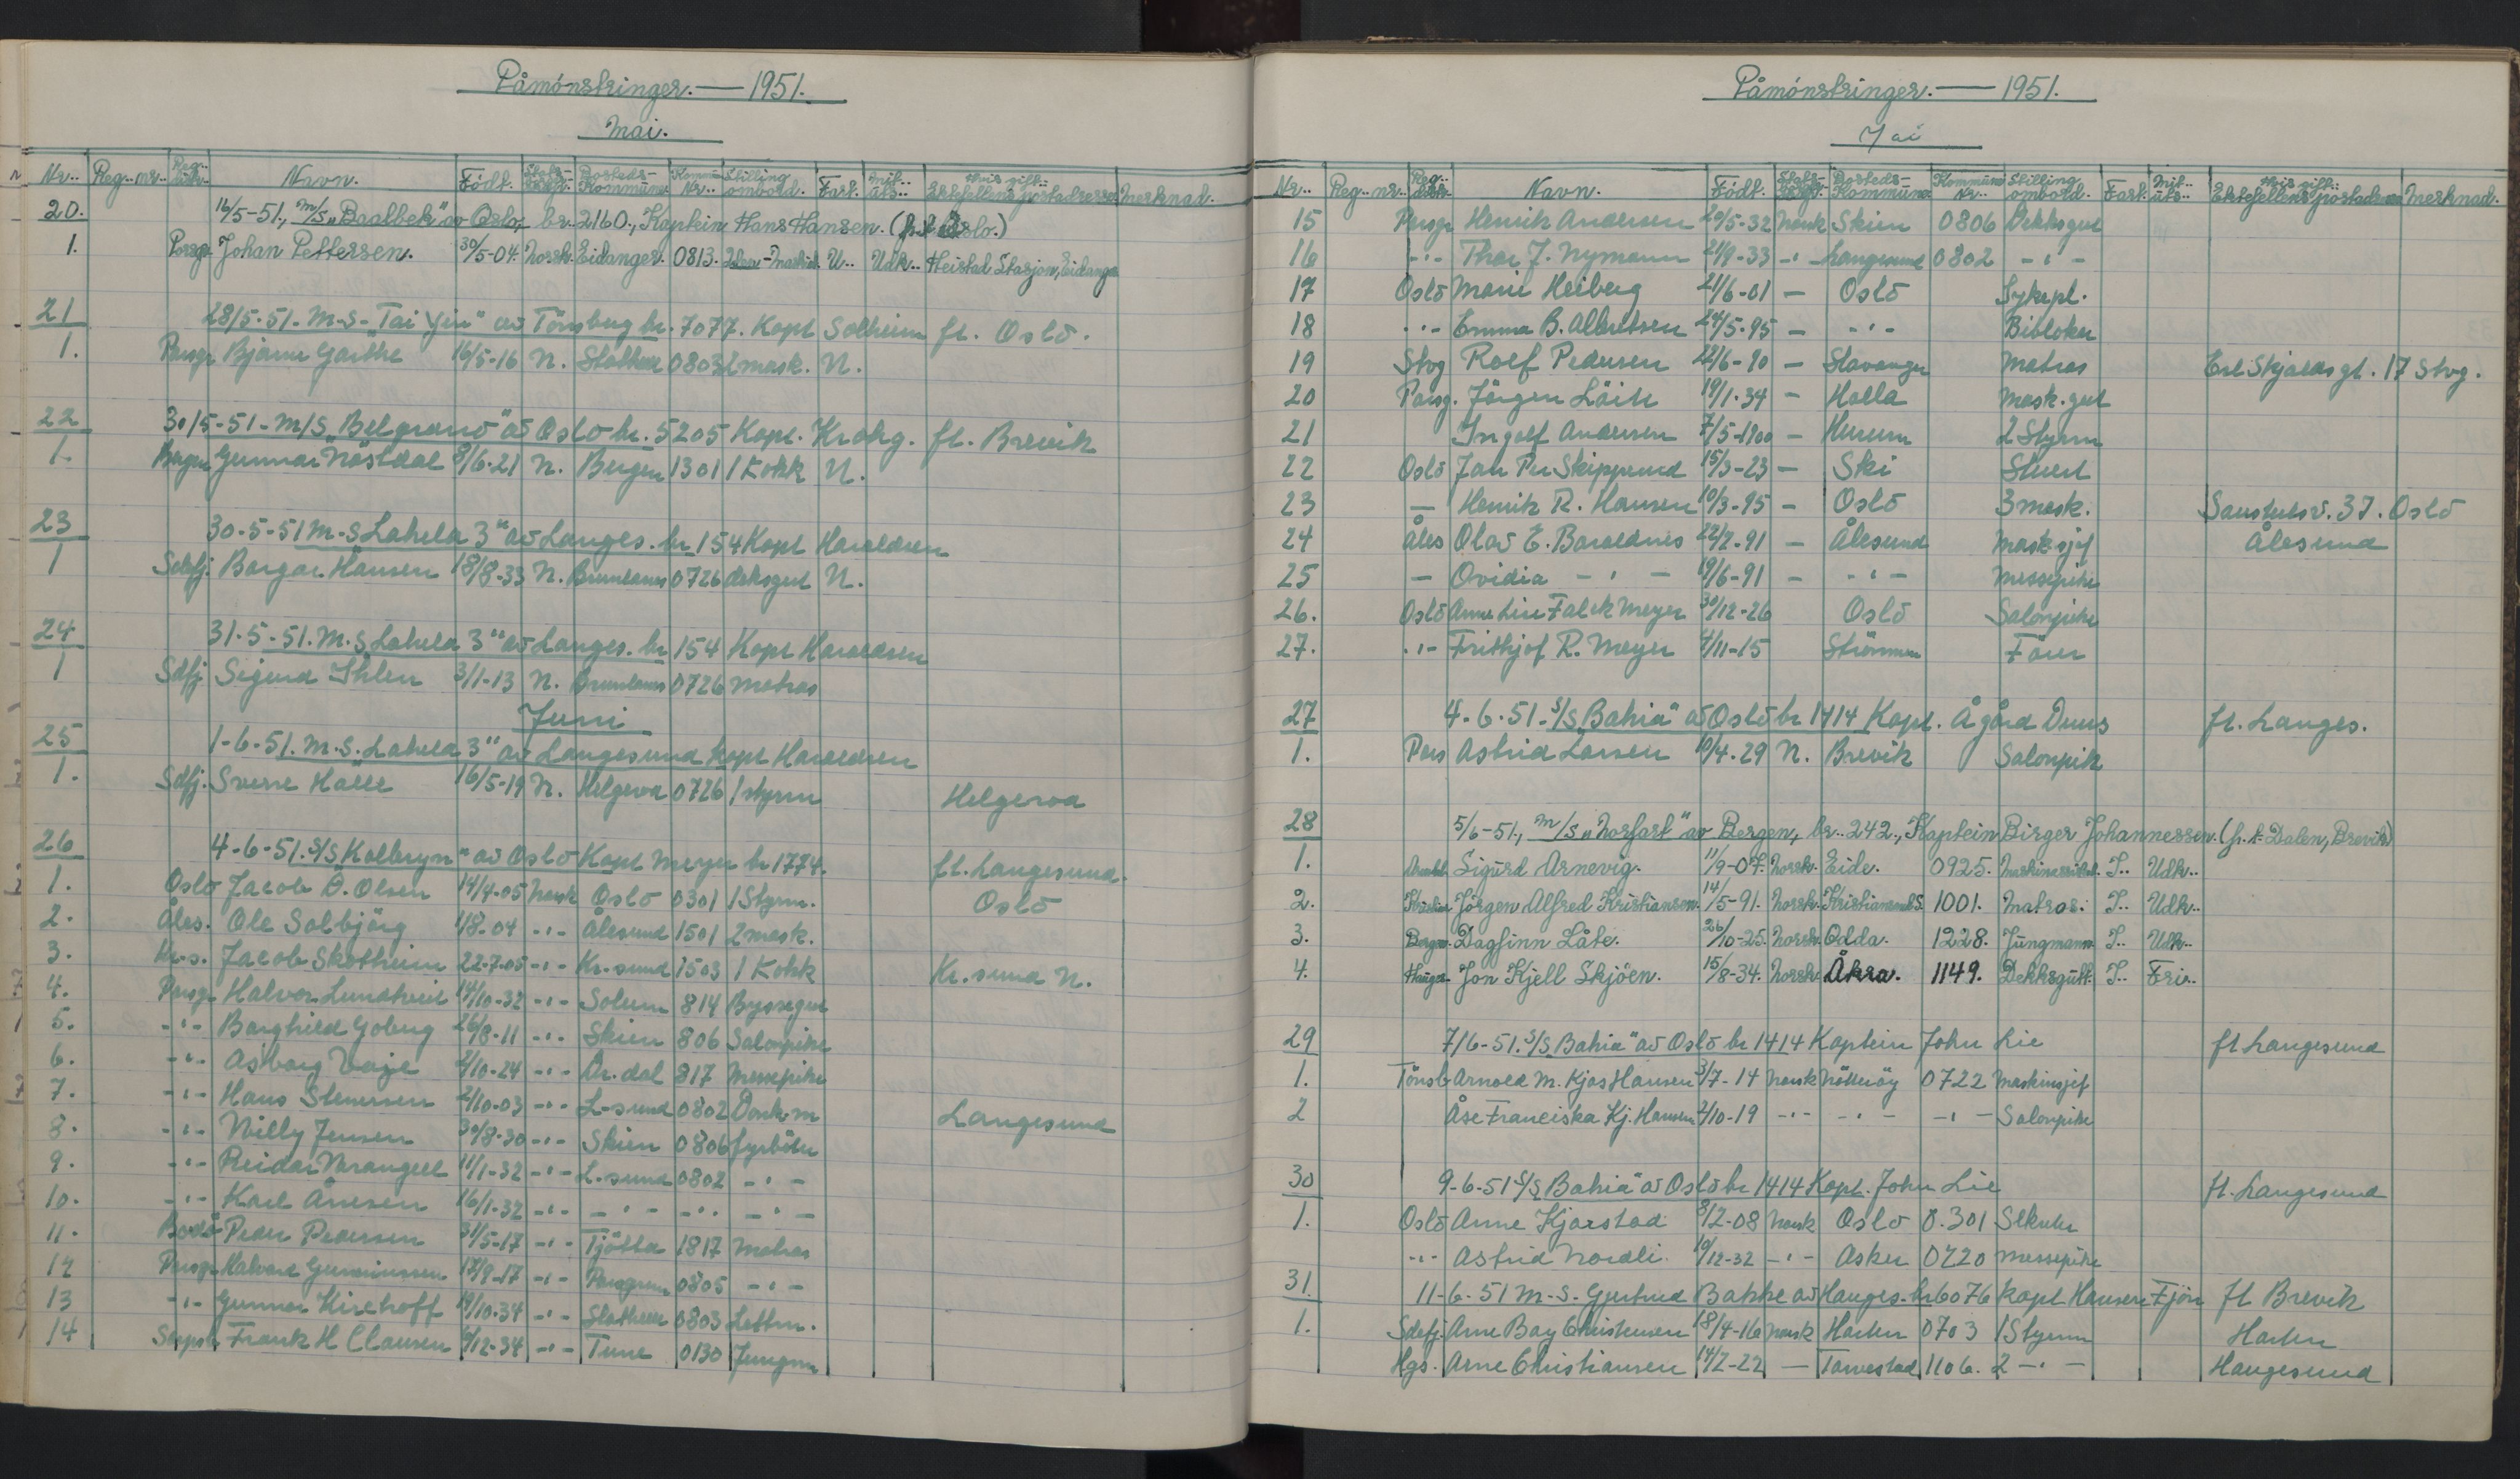 Påmónstringer. — 1951.
Mai.
Nr.. Reg.. nr.. Reg.. Navn. Födt. Stats- Bosteds- Kommune Kommune Nr.. Stilling ombord. Fart. Mil.. uts.. Hvis gift.. Ektefellens postadresse Merknad.
20. 12/5-51., M/S „Baalbek" av Oslo, br. 2160., Kaptein Hans Hansen. (f.t. Oslo.)
1. Porsgr. Johan Pettersen. 30/5-04. Norsk. Eidanger. 0813. U.. Udk.. Heistad Stasjon, Eidanger
21 28/5-51. M-S- "Tai Yin" av Tönsberg br. 7077. Kapt Solheim ft. Oslo.
1. Porsgr Bjarne Garthe 16/5-16 N. Stathelle 0803 2 mask. N.
22 30/5-51- M/S "Belgrano" av Oslo br. 5205 Kapt. Krohg. ft. Brevik
1. Bergen Gunnar Nöstdal 8/6-21 N. Bergen 1301 1 Kokk N.
23 30-5-51 M-S Lahela 3" av Langes. br 154 Kapt Haraldsen
1 Sdefj. Borgar Hansen 18/8-33 N. Brunlanes 0726 deksgut N.
24 31-5-51. M.S Lahela 3" av Langes. br 154 Kapt Haraldsen
1 Sdfj Sigurd Ihlen 3/1-13 N. Brunlanes 0726 Matros
Juni
25 1-6-51. M.S. Lahela 3" av Langesund Kapt Haraldsen
1. Sdfj. Sverre Halle 16/5-19 N. Helgeroa 0726 1 styrm Helgeroa
26 4-6-51. S/S Kolbryn" av Oslo Kapt Meyer br 1774. ft. Langesund.
1. Oslo Jacob O. Olsen 14/4-05 Norsk Oslo 0301 1 Styrm. Oslo
2. Åles. Ole Solbjörg 1/8-04 -"- Ålesund 1501 2 mask.
3. Kr.s. Jacob Skotheim 22-7-05 -"- Kr.sund 1503 1 Kokk Kr.sund N.
4. Porsgr Halvor Lundtveit 14/10-32 -"- Solum 814 Byssegut
5. -"- Borghild Goberg 26/8-11 -"- Skien 806 Salonpike
6. -"- Asborg Vaje 2/10-24 -"- Dr.dal 817 Messepike
7. -"- Hans Stenersen 2/10-03 -"- L-sund 0802 Donk.m Langesund
8. -"- Willy Jensen 30/8-30 -"- Skien 0806 fyrböter
9. -"- Reidar Wrangell 11/1-32 -"- L.sund 0802 -"-
10. -"- Karl Ånesen 16/1-32 -"- -"- -"- -"-
11. Bodö Peder Pedersen 31/5-17 -"- Tjötta 1817 Matros
12 Porsgr Halvard Gunerius­sen 17/9-17 -"- Porsgrunn 0805 -"-
13 -"- Gunnar Kirchoff 19/10-34 -"- Stathelle 0803 Lettm.
14 Sarpsb Frank H Clausen /12-34 -"- Tune 0130 Jungm
Påmónstringer. — 1951.
Mai
Nr.. Reg.. nr.. Reg.. Navn. Födt. Stats- Bosteds- Kommune Kommune Nr.. Stilling ombord. Fart. Mil.. uts.. Hvis gift.. Ektefellens postadresse Merknad.
15 Porsgr Henrik Andersen 20/5-32 Norsk Skien 0806 Dekksgut
16 -"- Thor J. Nymann 21/9-33 -"- Langesund 0802 -"-
17 Oslo Marie Heiberg 21/6-01 — Oslo Sykepl.
18 -"- Emma B. Albretsen 24/5-95 — -"- Bibloker
19 Stvg Rolf Pedersen 22/6-90 — Stavanger Matros Erl Skjalds gt. 17 Stvg.
20 Porsg. Jörgen Löite 19/1-34 — Holla Mask.gut
21 Ingolf Andersen 7/5-1900 — Hurum 2 Styrm
22 Oslo Jan Per Skipperud 15/3-23 — Ski Stuert
23 — Henrik R. Hansen 10/3-95 — Oslo 3 mask. v. 37. Oslo
24 Åles Olav E. Baraldsnes 22/2-91 — Ålesund Masksjef Ålesund
25 — Ovidia -"- 19/6-91 — -"- Messepike
26. Oslo Anne Lise Falck Meyer 30/12-26 Oslo Salonpike
27. -"- Frithjof R. Meyer 4/11-15 Strömmen Förer
27 4-6-51- S/S Bahia" av Oslo br 1414 Kapt. Ågård Duus ft. Langes.
1. Pors Astrid Larsen 10/4-29 N. Brevik Salonpik
28 5/6-51., M/S „Norfart" av Bergen, br.. 242., Kaptein Birger Johannessen. (f.t. Dalen, Brevik)
1. Arendal Sigurd Arnevig. 11/9-07. Norsk. Eide. 0925. Maskinassist. I.. Udk..
2. Jörgen Alfred Kristiansen. 14/5-91. Norsk. Kristiansand S. 1001. Matros. I.. Udk..
3. Bergen. Dagfinn Låte. 26/10-25. Norsk. Odda. 1228. Jungmann. I.. Udk..
4. Hauges. Jon Kjell Skjöen. 15/8-34. Norsk Åkra. 1149. Dekksgutt. I.. Fri..
29 7/6-51. S/S Bahia" av Oslo br 1414 Kaptein John Lie ft Langesund
1. Tönsb Arnold M. Kjos Hansen 3/7-14 Norsk Nötteröy 0722 Maskinsjef
2 Åse Franciska Kj. Hansen 2/10-19 -"- -"- -"- Salonpike
30 9-6-51 S/S Bahia" av Oslo br 1414 Kapt. John Lie ft. Langesund
1. Oslo Anne Kjarstad 8/2-08 Norsk Oslo 0.301 Stkuter
-"- Astrid Nordli 19/12-32 -"- Asker 0220 Messepike
31. 11-6-51 M-S. Gjertrud Bakke av Hauges. br 6076 Kapt Hansen Fjön ft Brevik
1. Sdefj. Arne Bay Christensen 18/4-16 Norsk Horten 0703 1 Styrm Horten
Hgs. Arne Christiansen 14/2-22 — Torvestad 1106. 2 -"- Haugesund